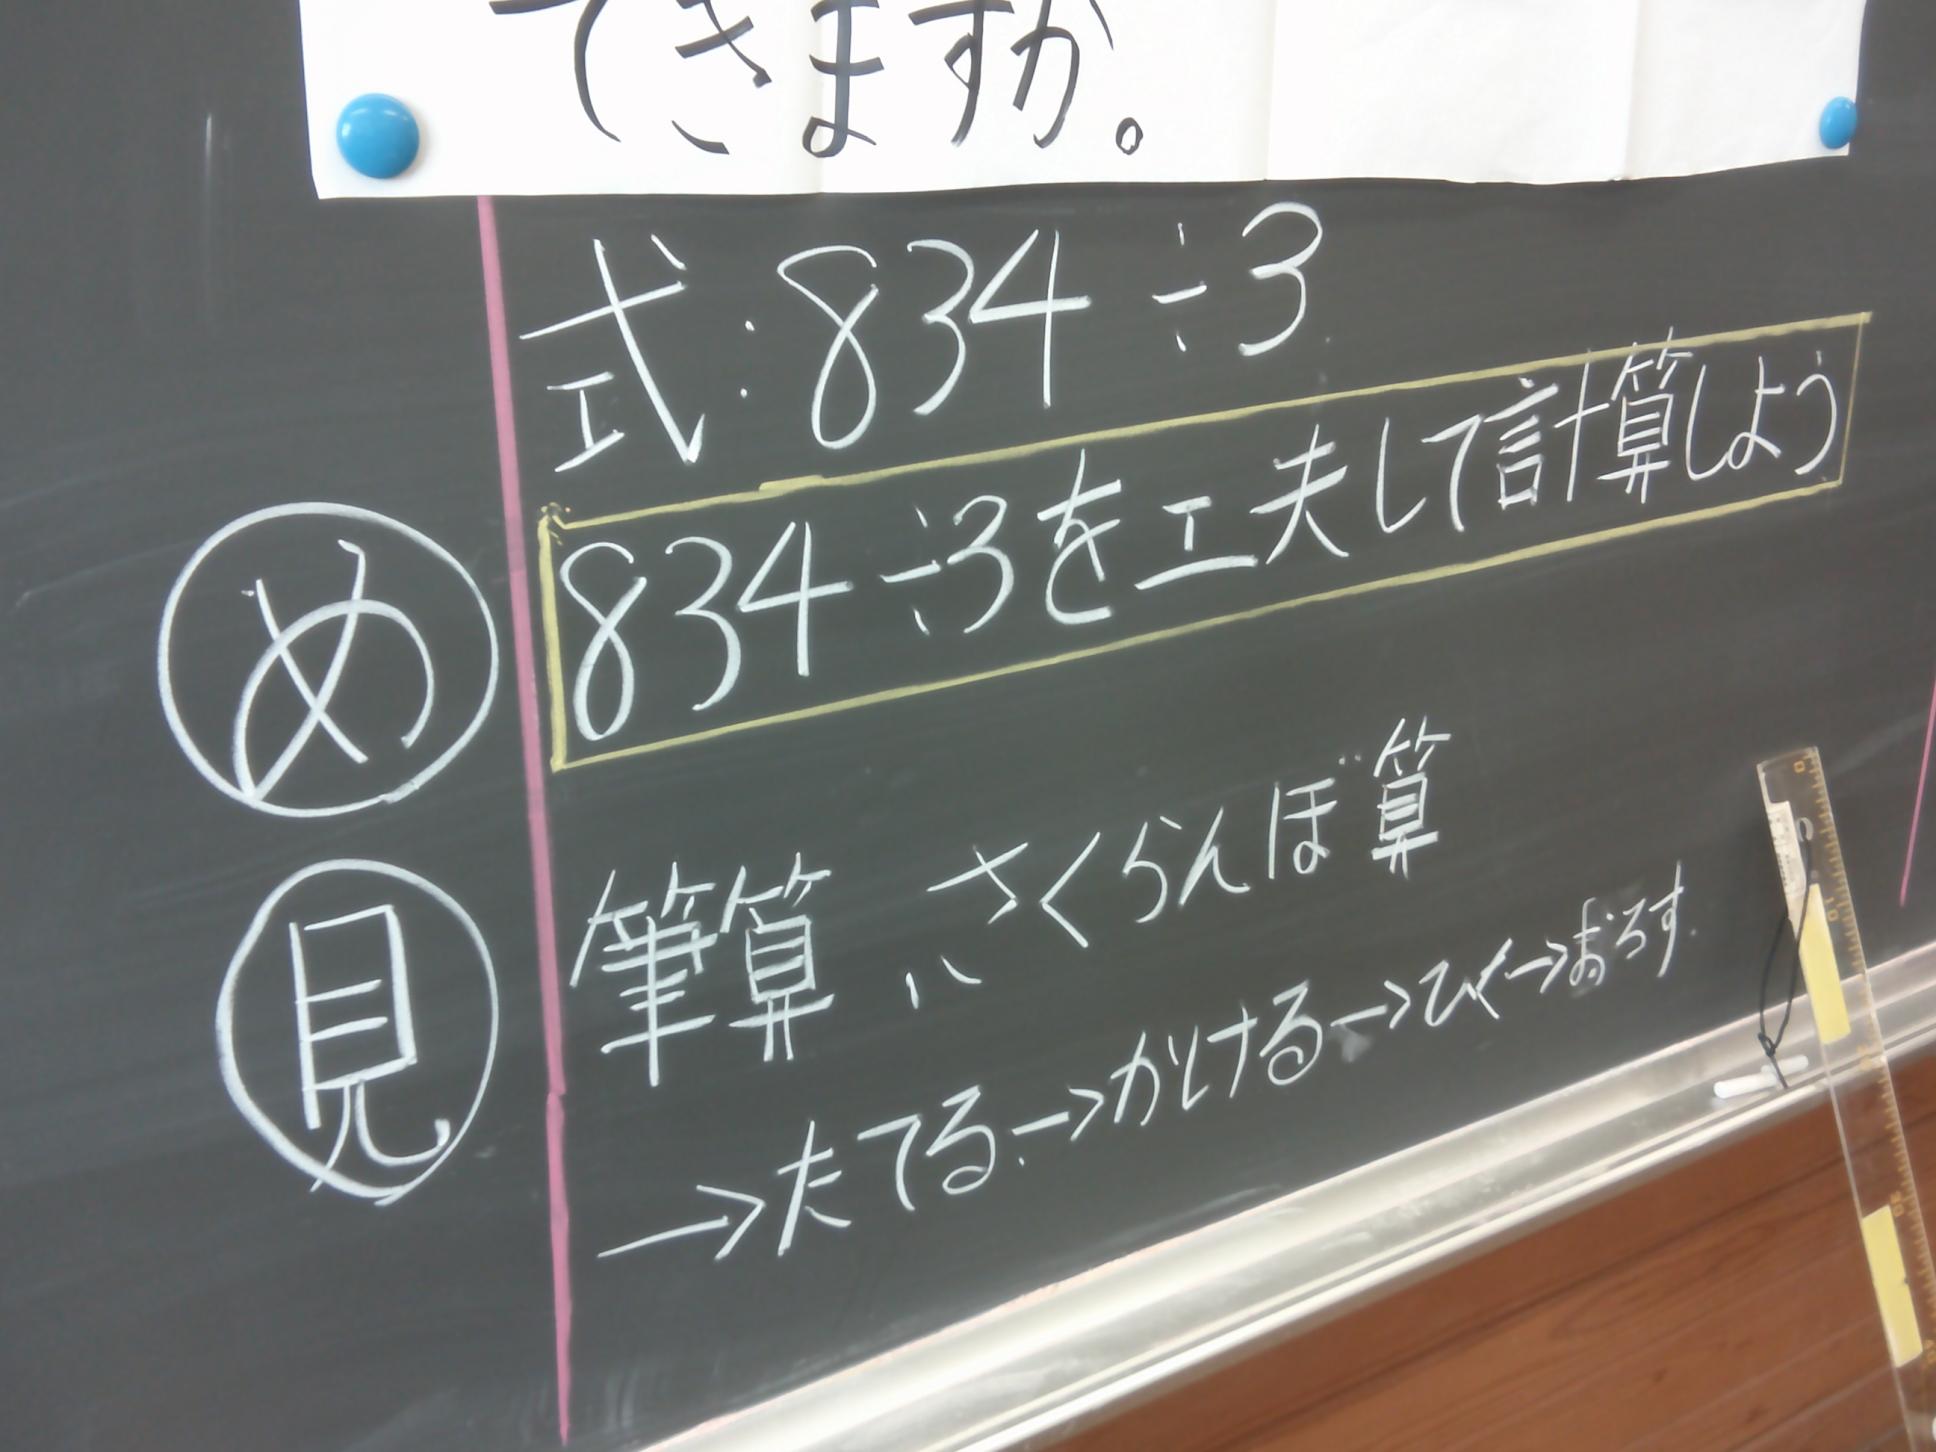 できますか。
式:834÷3
め 834÷3を工夫して計算しよう
見 筆算、さくらんぼ算
→たてる→かける→ひく→おろす